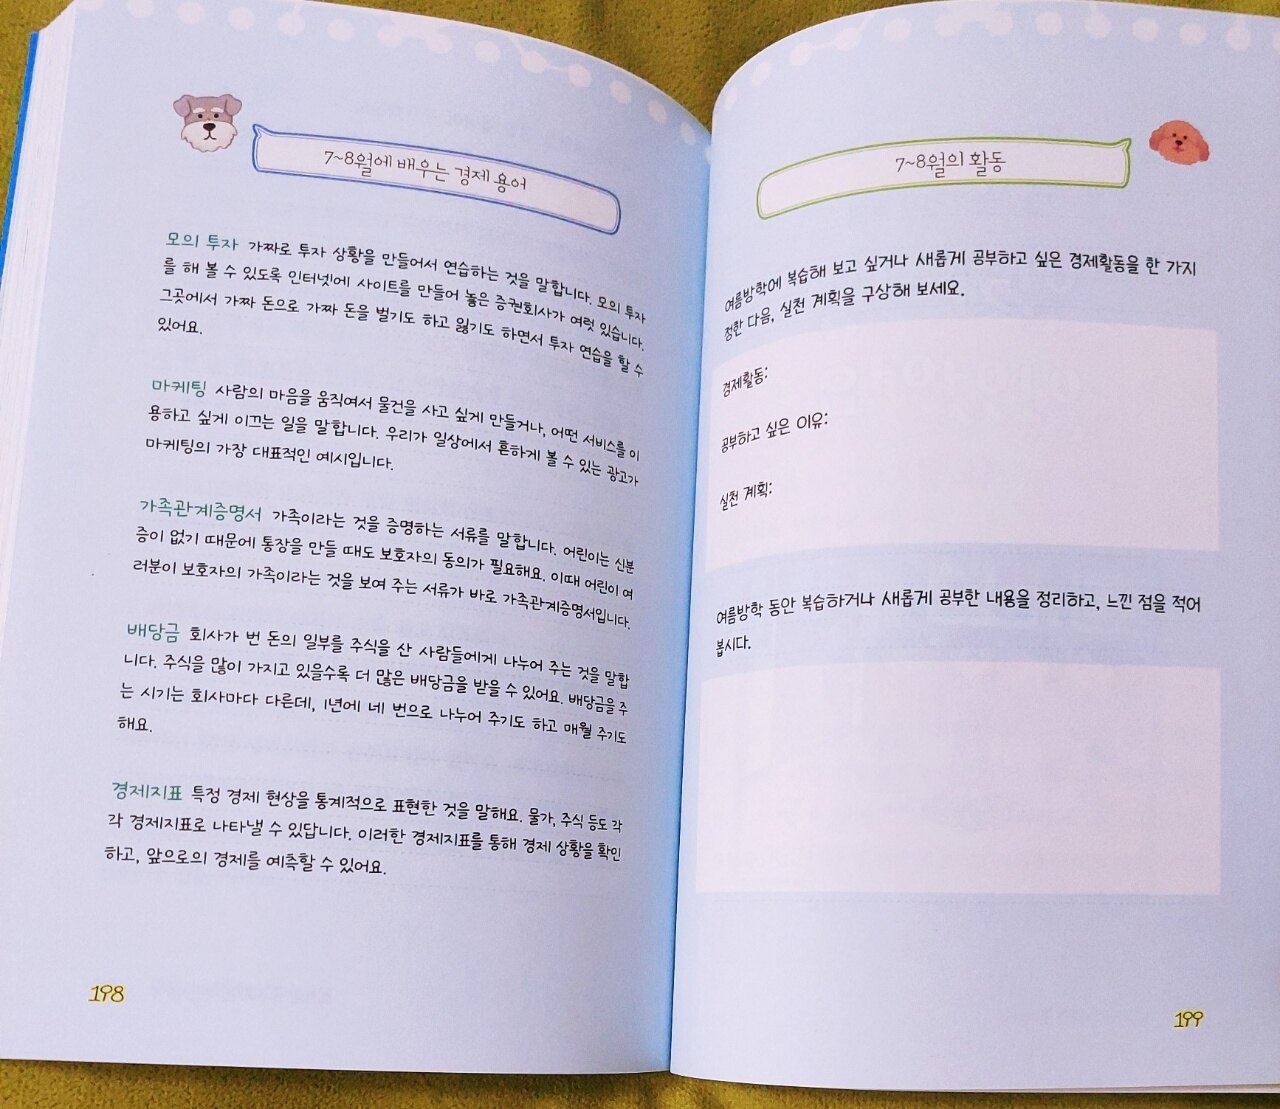 7~8월에 배우는 경제 용어
모의 투자 가짜로 투자 상황을 만들어서 연습하는 것을 말합니다. 모의 투자
를 해 볼 수 있도록 인터넷에 사이트를 만들어 놓은 증권회사가 여럿 있습니다.
그곳에서 가짜 돈으로 가짜 돈을 벌기도 하고 잃기도 하면서 투자 연습을 할 수
있어요.
마케팅 사람의 마음을 움직여서 물건을 사고 싶게 만들거나, 어떤 서비스를 이
용하고 싶게 이끄는 일을 말합니다. 우리가 일상에서 흔하게 볼 수 있는 광고가
마케팅의 가장 대표적인 예시입니다.
가족관계증명서 가족이라는 것을 증명하는 서류를 말합니다. 어린이는 신분
증이 없기 때문에 통장을 만들 때도 보호자의 동의가 필요해요. 이때 어린이 여
러분이 보호자의 가족이라는 것을 보여 주는 서류가 바로 가족관계증명서입니다.
배당금 회사가 번 돈의 일부를 주식을 산 사람들에게 나누어 주는 것을 말합
니다. 주식을 많이 가지고 있을수록 더 많은 배당금을 받을 수 있어요. 배당금을 주
는 시기는 회사마다 다른데, 1년에 네 번으로 나누어 주기도 하고 매월 주기도
해요.
경제지표 특정 경제 현상을 통계적으로 표현한 것을 말해요. 물가, 주식 등도 각
각 경제지표로 나타낼 수 있답니다. 이러한 경제지표를 통해 경제 상황을 확인
하고, 앞으로의 경제를 예측할 수 있어요.
198
7~8월의 활동
여름방학에 복습해 보고 싶거나 새롭게 공부하고 싶은 경제활동을 한 가지
정한 다음, 실천 계획을 구상해 보세요.
경제활동:
공부하고 싶은 이유:
실천 계획:
여름방학 동안 복습하거나 새롭게 공부한 내용을 정리하고, 느낀 점을 적어
봅시다.
199